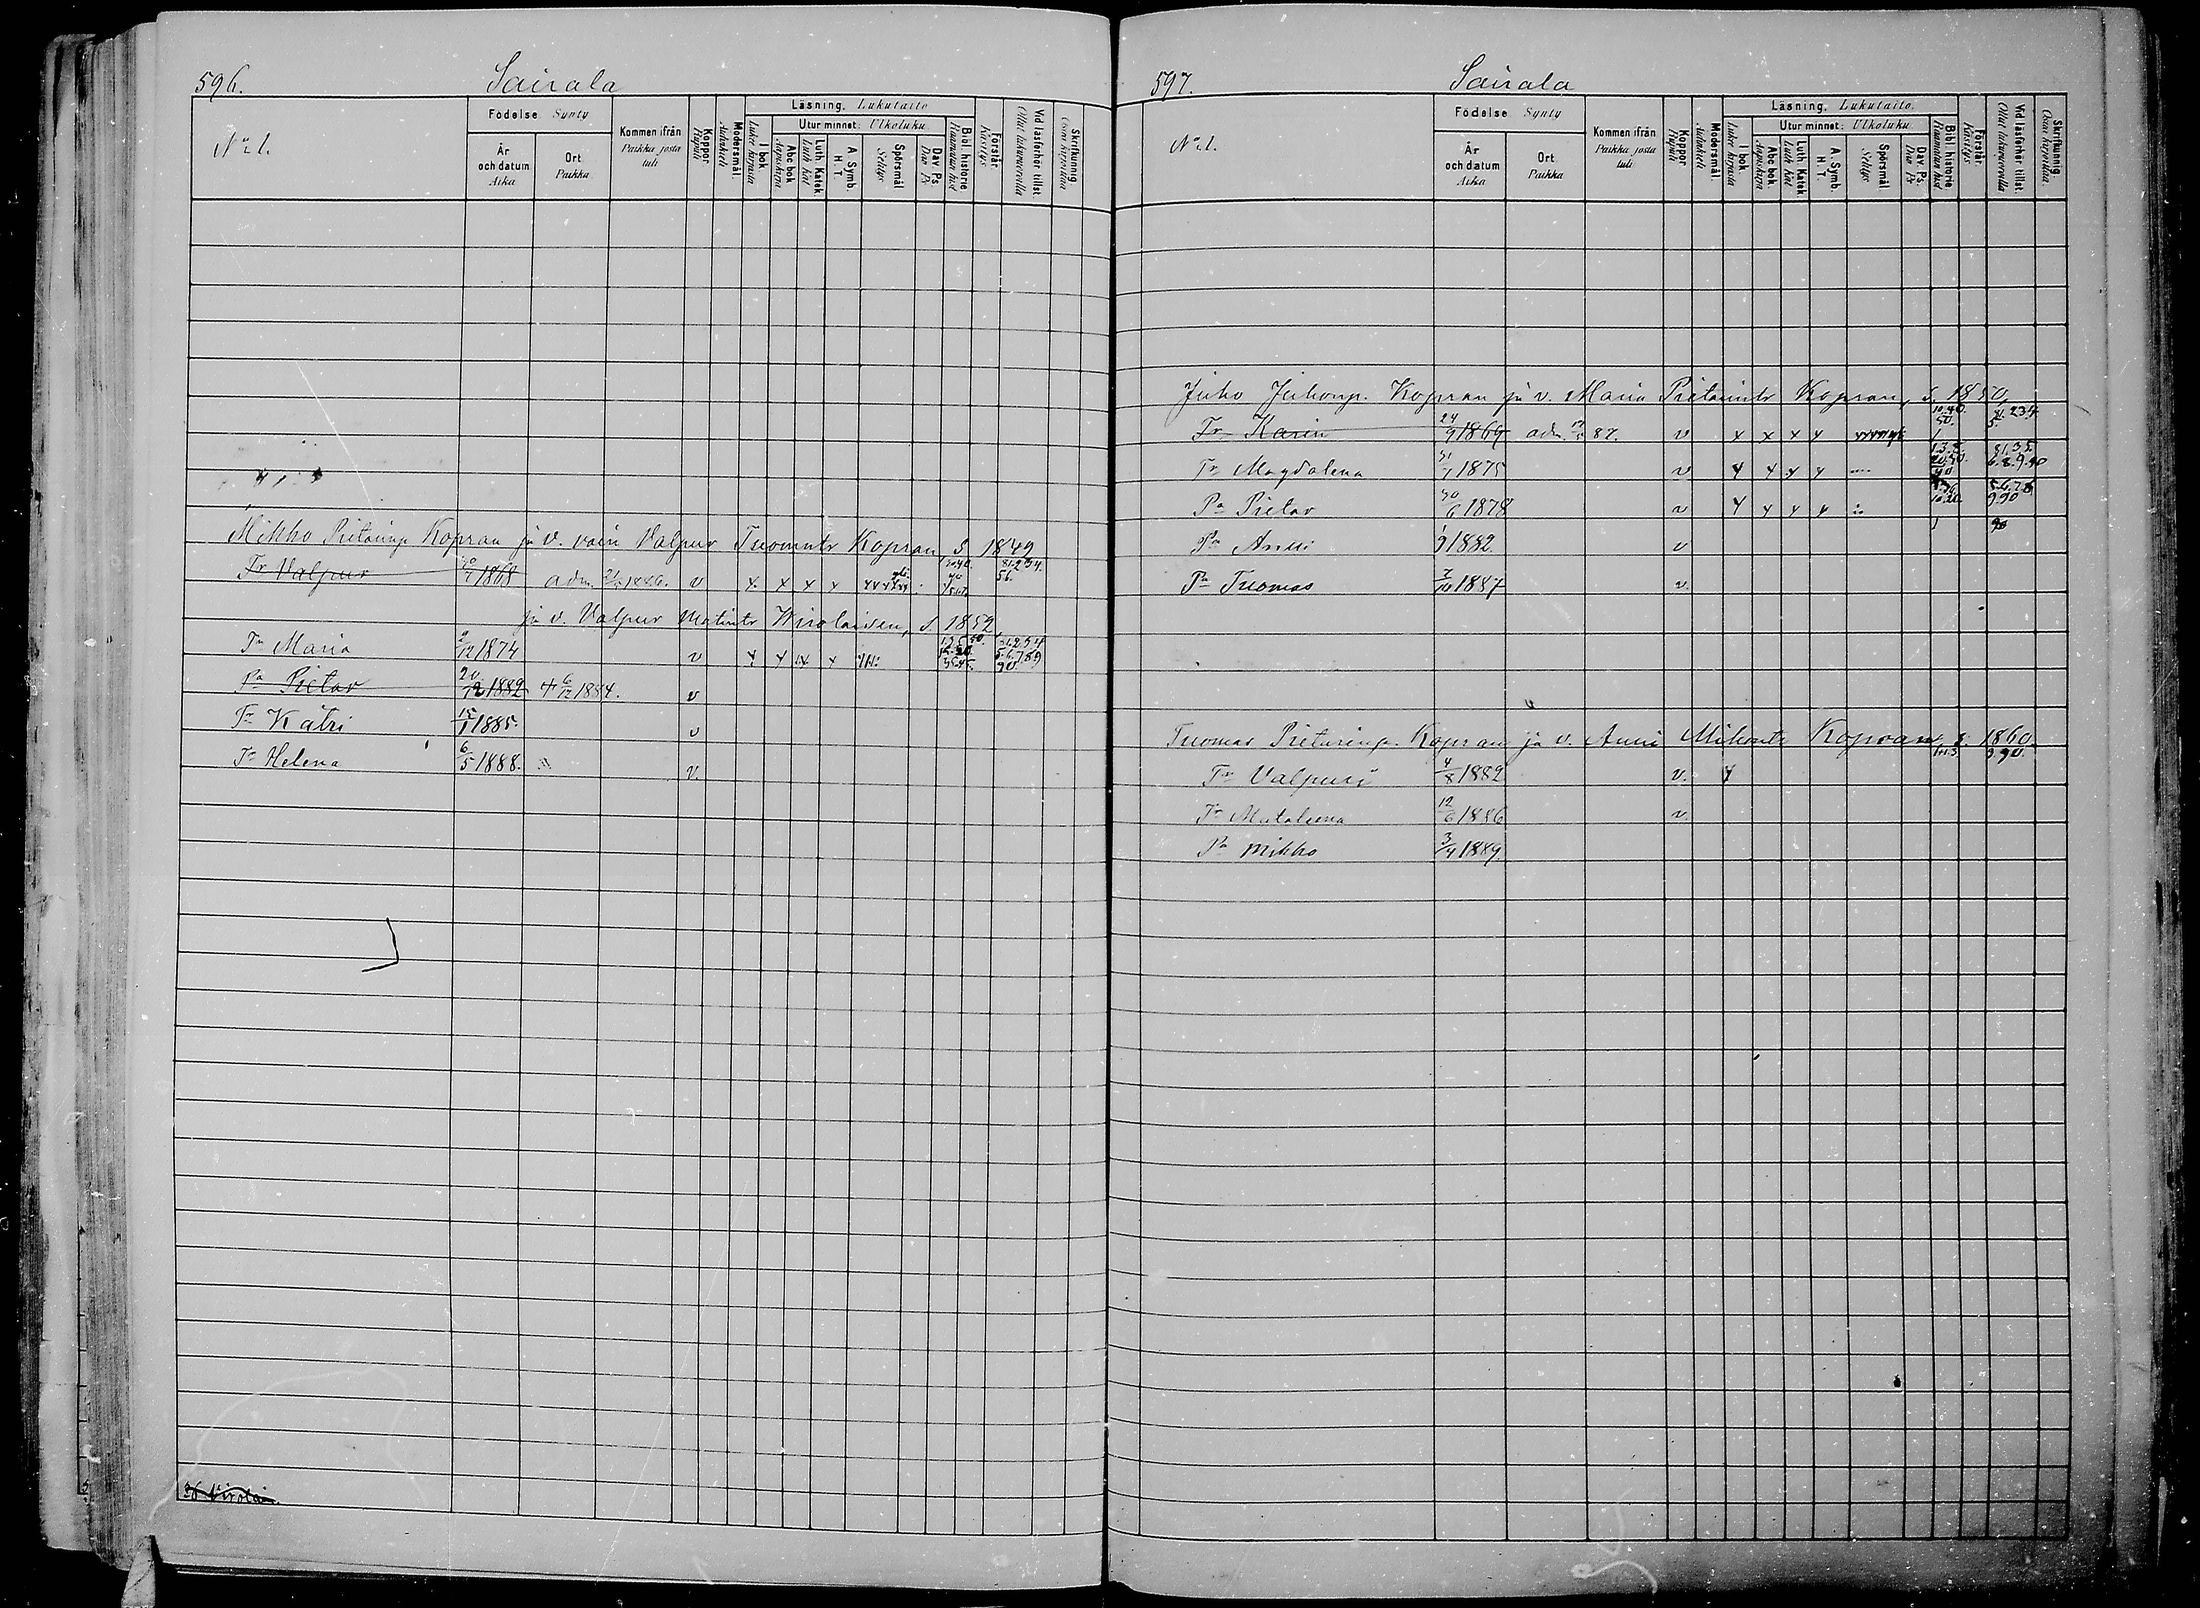 596.
Sairala
No 1.
Födelse Synty
År och datum Aika
Ort Paikka
Kommen ifrån Paikka josta tuli
Koppor Rupuli
Modersmål. Äidinkieli
Läsning. Lukutaito
I bok. Lukee kirjasta
Utur minnet: Ulkoluku.
Abc bok Aapiskirja
Luth. Katek. Luth Kat
A. Symb. H. T.
Spörsmål Selitys
Dav. Ps. Dav Ps
Bibl. historie Raamatun hist
Förstår. Käsitys
Vid läsförhör tillst. Ollut lukukinkereillä
Skrifkunnig. Osaa kirjoittaa
Mikko Pietarinp. Kopran ja v. vain Valpur Tuomantr Kopran, S. 1849
Tr Valpur 1868 adm. 1886. v x x x x
ja v. Valpur Matintr Wirolainen, S. 1852
Tr Maria 2/12 1874 v x x x x
Pa Pietar 20/12 1882 + 6/12 1884. v
Tr Katri 15/1 1885. v
Tr Helena 6/5 1888. v.
597.
Sairala
No 1.
Födelse Synty
År och datum Aika
Ort Paikka
Kommen ifrån Paikka josta tuli
Koppor Rupuli
Modersmål. Äidinkieli
Läsning. Lukutaito.
I bok. Lukee kirjasta
Utur minnet: Ulkoluku
Abc bok Aapiskirja
Luth. Katek. Luth Kat
A. Symb. H. T.
Spörsmål Selitys
Dav. Ps. Dav Ps
Bibl. historie Raamatun hist
Förstår. Käsitys
Vid läsförhör tillst. Ollut lukukinkereillä
Skrifkunnig. Osaa kirjoittaa
Juho Juhonp. Kopran ja v. Maria Pietarintr Kopran, S. 1850,
Tr Karin 24/9 1869 adm. 87. v x x x x
Tr Magdalena 31/7 1875 v x x x x
Pa Pietar 30/6 1878 v x x x x
Pa Antti 1/9 1882. v
Pa Tuomas 7/10 1887 v.
Tuomas Pietarinp. Kopran ja v. Anni Mikontr Kopran, s. 1860.
Tr Valpuri 4/8 1882 v. x
Tr Mataleena 12/6 1886 v.
Pa Mikko 3/4 1889.